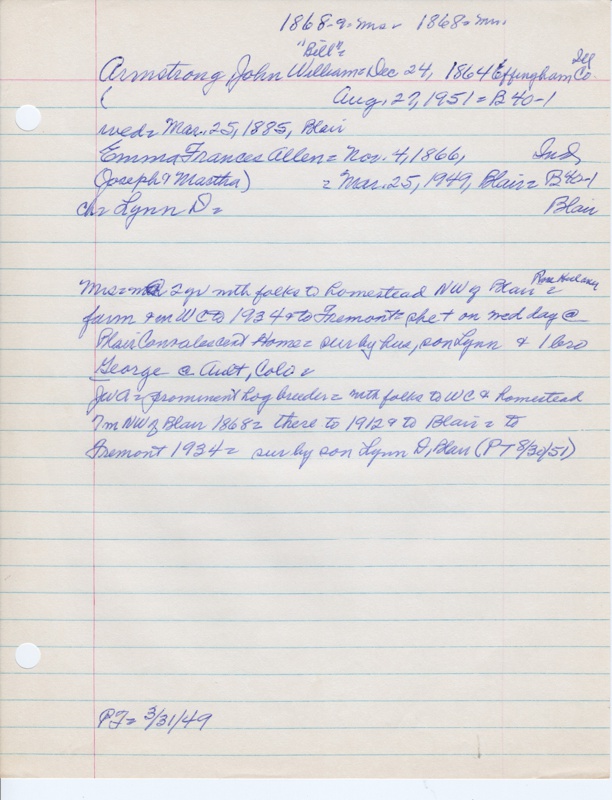 1868-9= mr= 1868= mrs.
"Bill"=
Armstrong, John William= Dec. 24, 1864 Effingham Co. Ill
( Aug. 27, 1951= B 40-1
wed= Mar. 25, 1885, Blair
Emma Frances Allen= Nov. 4, 1866, Ind,
(Joseph & Martha) = Mar. 25, 1949, Blair= B40-1
ch= Lynn D= Blair
Mrs= m@ 2 yr wth folks to homestead NW of Blair =
farm in WC to 1934 & to Fremont= she + on wed day @
Blair Convalescent Home= sur by hus, son Lynn & 1 bro
George @ Ault, Colo=
JWA= prominent hog breeder= wth folks to WC & homestead
7m NW of Blair 1868= there to 1912 & to Blair= to
Fremont 1934= sur by son Lynn D, Blair (PT 8/30/51)
PT= 3/31/49